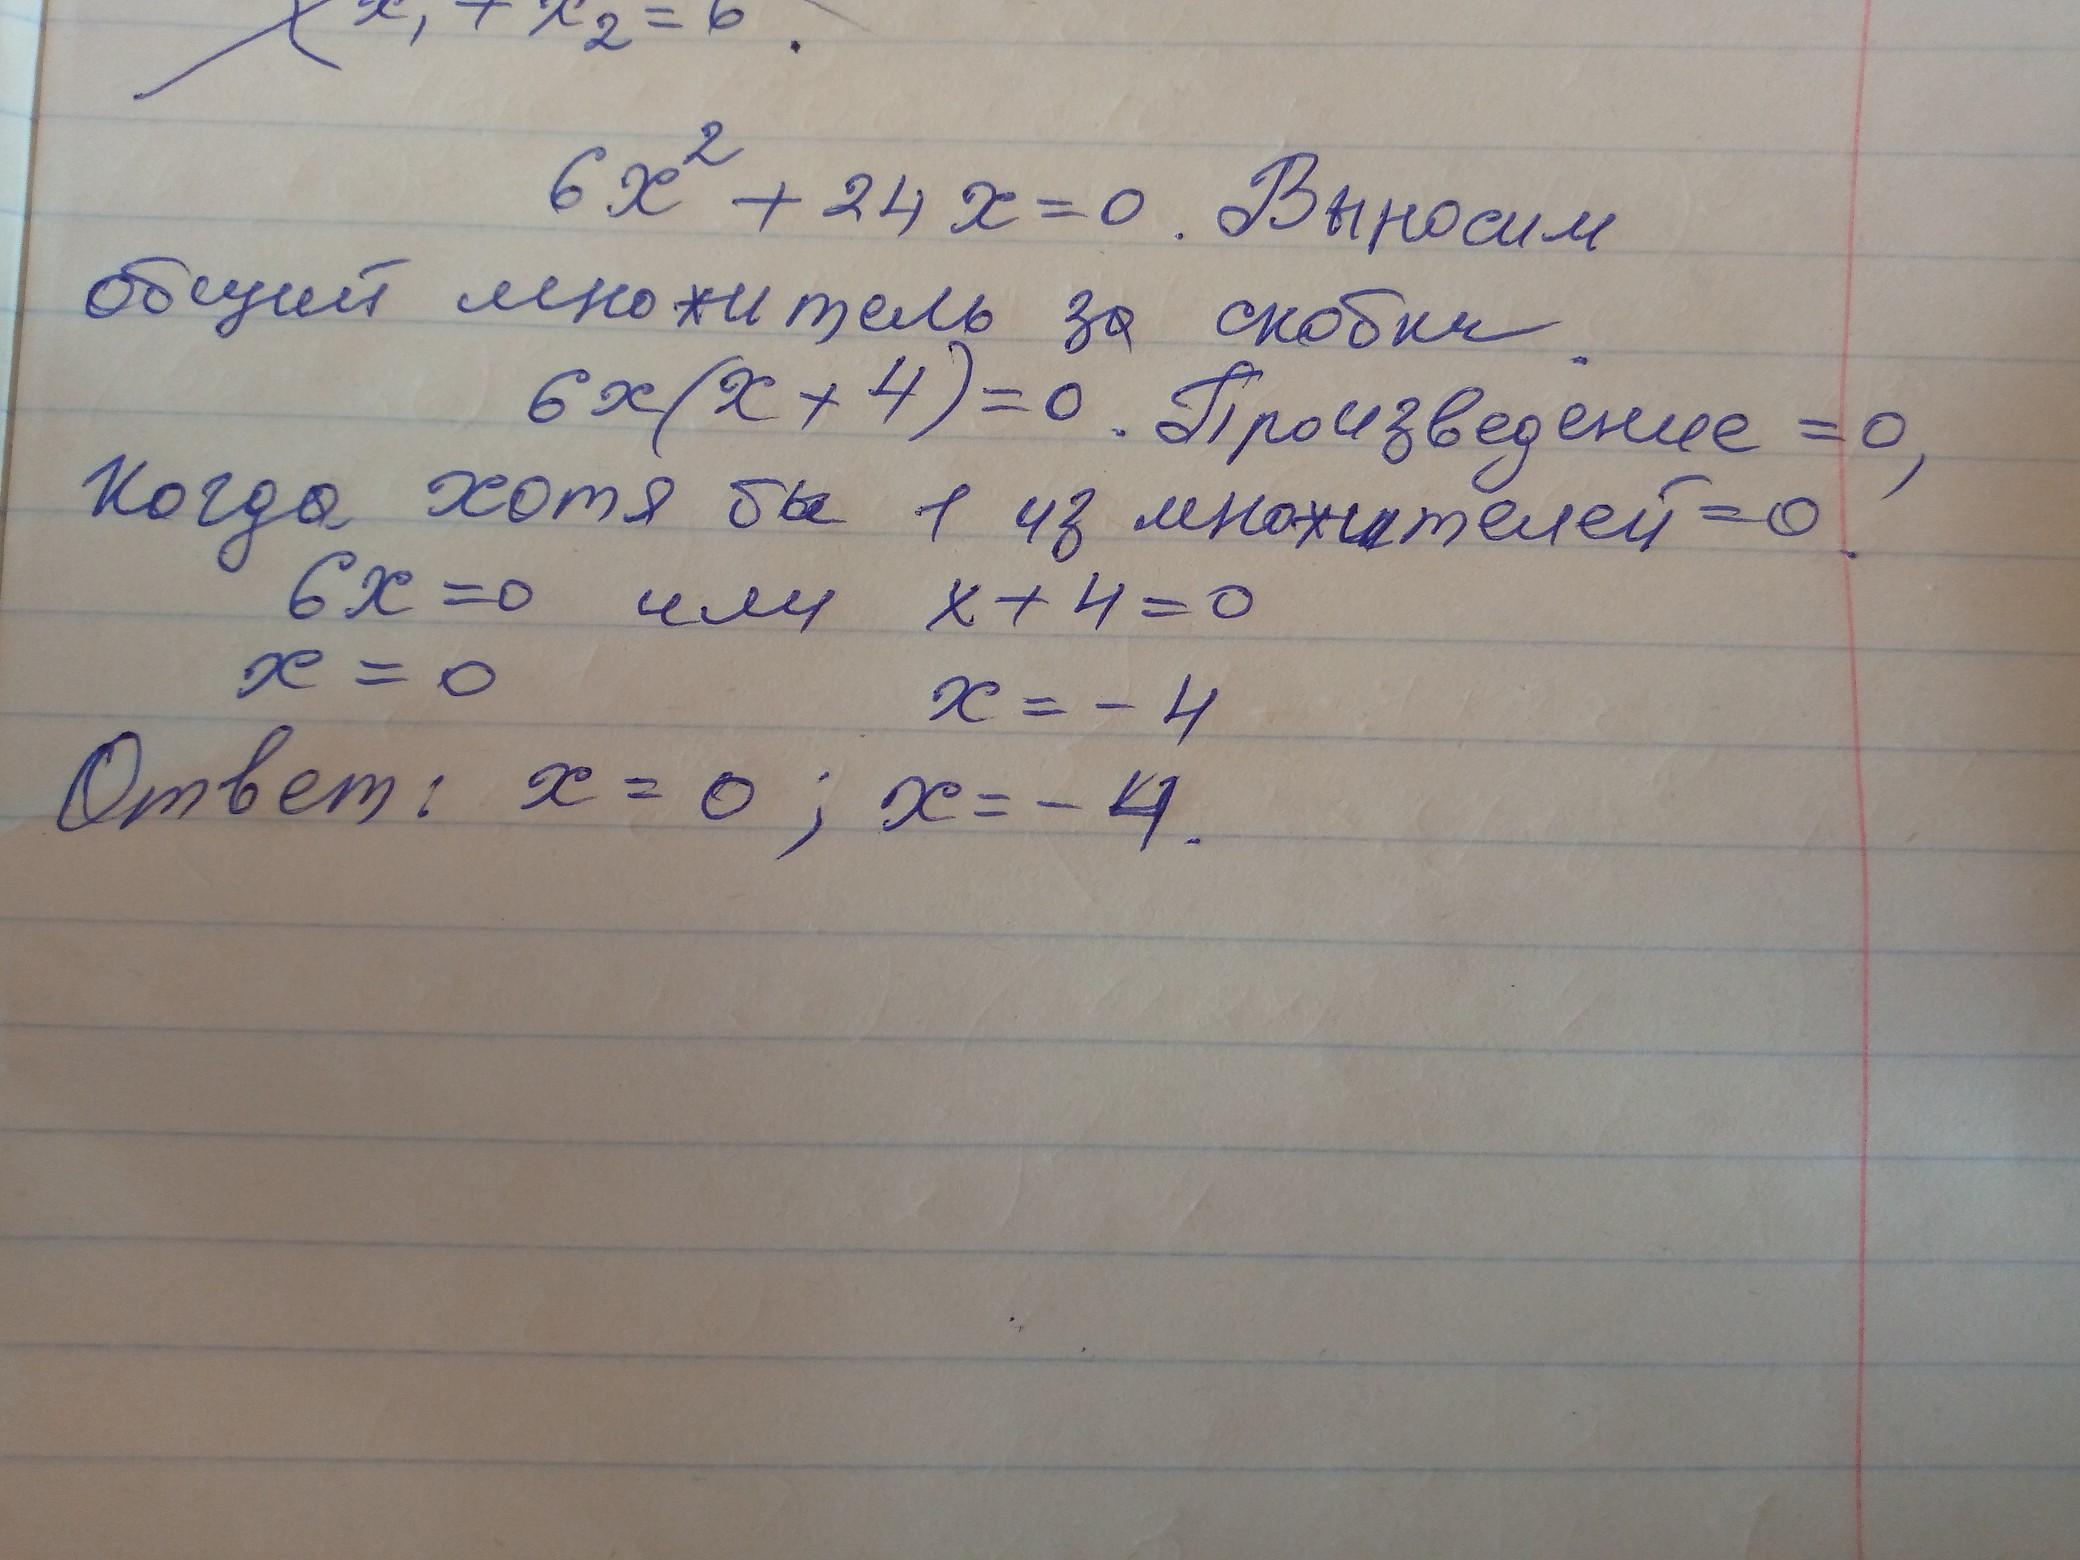 x₁ + x₂ = 6.
6x² + 24x = 0. Выносим
общий множитель за скобки.
6x(x + 4) = 0. Произведение = 0,
когда хотя бы 1 из множителей = 0.
6x = 0 или x + 4 = 0
x = 0 x = - 4
Ответ: x = 0; x = - 4.